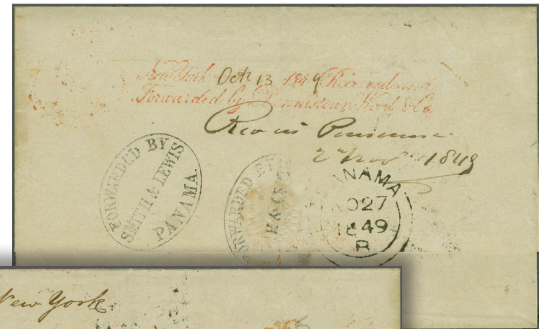 New York Oct 13 1849 Recd and
Forwarded by Dennistoun Wood & Co
Rec in Panama
2 Nov 1849
FORWARDED BY
SMITH & LEWIS
PANAMA.
FORWARDED BY
PANAMA
NO 27
1849
B
New York